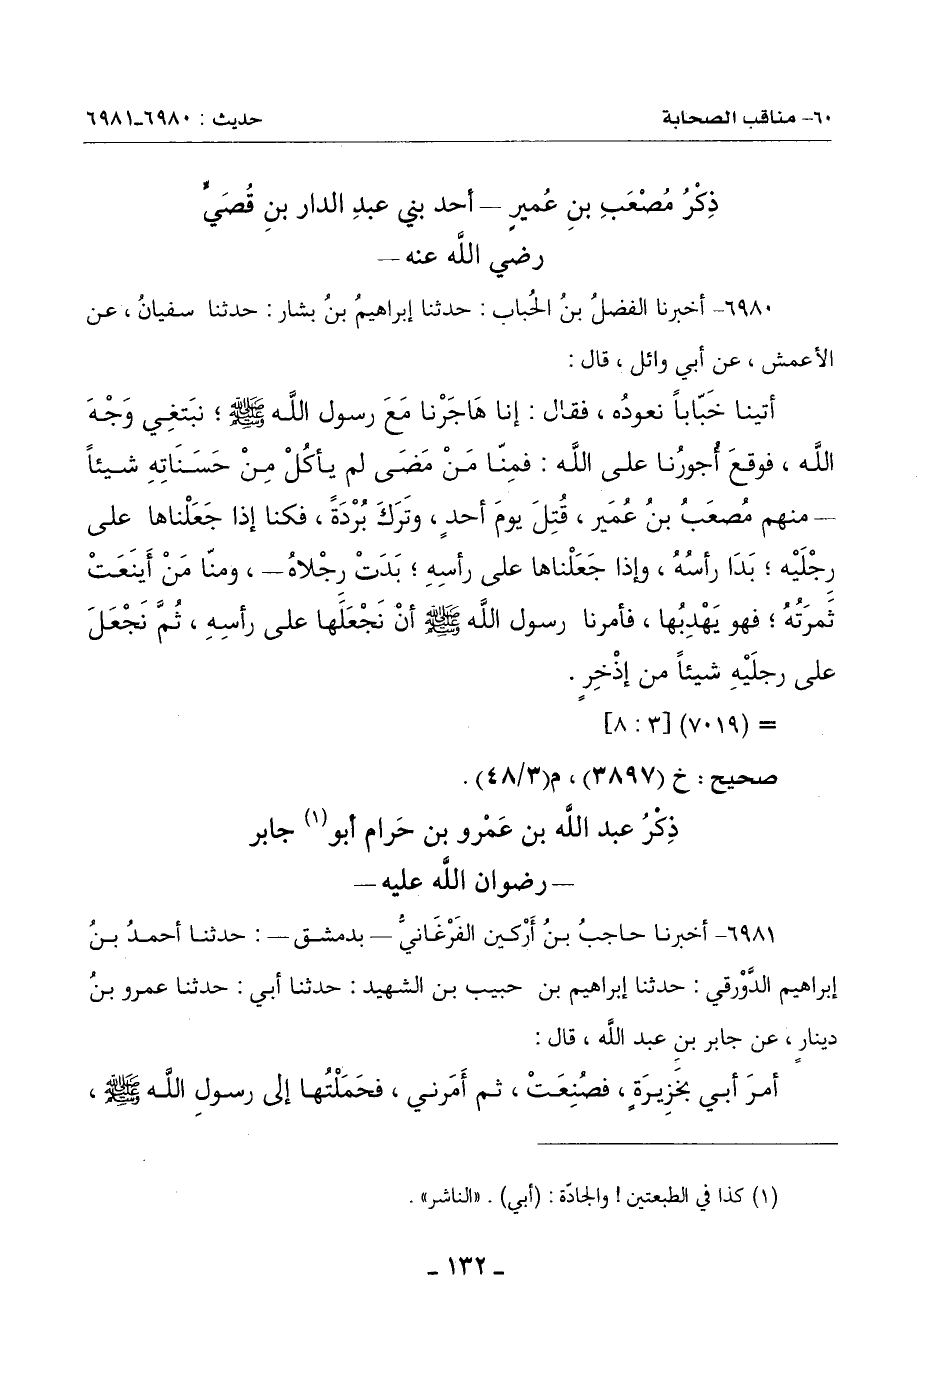 ٦٠- مناقب الصحابة حديث : ٦٩٨٠-٦٩٨١
ذِكْرُ مُصْعَبِ بنِ عُميرٍ – أحد بني عبدِ الدار بنِ قُصَيٍّ
رضي اللَّه عنه –
٦٩٨٠- أخبرنا الفضلُ بنُ الحُباب : حدثنا إبراهيمُ بنُ بشار : حدثنا سفيانُ ، عن
الأعمش ، عن أبي وائل ، قال :
أتينا خَبّاباً نعودُه ، فقال : إنا هَاجَرْنا مَعَ رسول اللَّه ﷺ ؛ نبَتغِي وَجْهَ
اللَّه ، فوقعَ أُجورُنا على اللَّه : فمِنّا مَنْ مَضَى لم يأكُلْ مِنْ حَسَنَاتِهِ شيئاً
– منهم مُصعَبُ بنُ عُمَير ، قُتِلَ يومَ أحدٍ ، وتَرَكَ بُرْدَةً ، فكنا إذا جَعَلْناها على
رِجْلَيْه ؛ بَدَا رأسُهُ ، وإذا جَعَلْناها على رأسِهِ ؛ بَدَتْ رِجْلاهُ – ، ومنّا مَنْ أَينَعَتْ
ثَمرَتُهُ ؛ فهو يَهْدِبُها ، فأمرنا رسول اللَّه ﷺ أنْ نَجْعَلَها على رأسِهِ ، ثُمَّ نَجْعَلَ
على رِجلَيْهِ شيئاً من إذْخِرٍ .
= (٧٠١٩) [٣ : ٨]
صحيح : خ (٣٨٩٧) ، م(٤٨/٣) .
ذِكْرُ عبد اللَّه بن عَمْرو بن حَرام أبو(١) جابر
– رضوان اللَّه عليه –
٦٩٨١- أخبرنا حاجبُ بنُ أرْكين الفَرْغَانيُّ – بدمشق – : حدثنا أحمدُ بنُ
إبراهيم الدَّوْرقي : حدثنا إبراهيم بن حبيب بن الشهيد : حدثنا أبي : حدثنا عمرو بنُ
دينارٍ ، عن جابر بنِ عبد اللَّه ، قال :
أمرَ أبي بخَزِيرَةٍ ، فصُنِعَتْ ، ثم أمَرني ، فحَمَلْتُها إلى رسولِ اللَّه ﷺ ،
(١) كذا في الطبعتين ! والجادّة : (أبي) . «الناشر» .
- ١٣٢ -